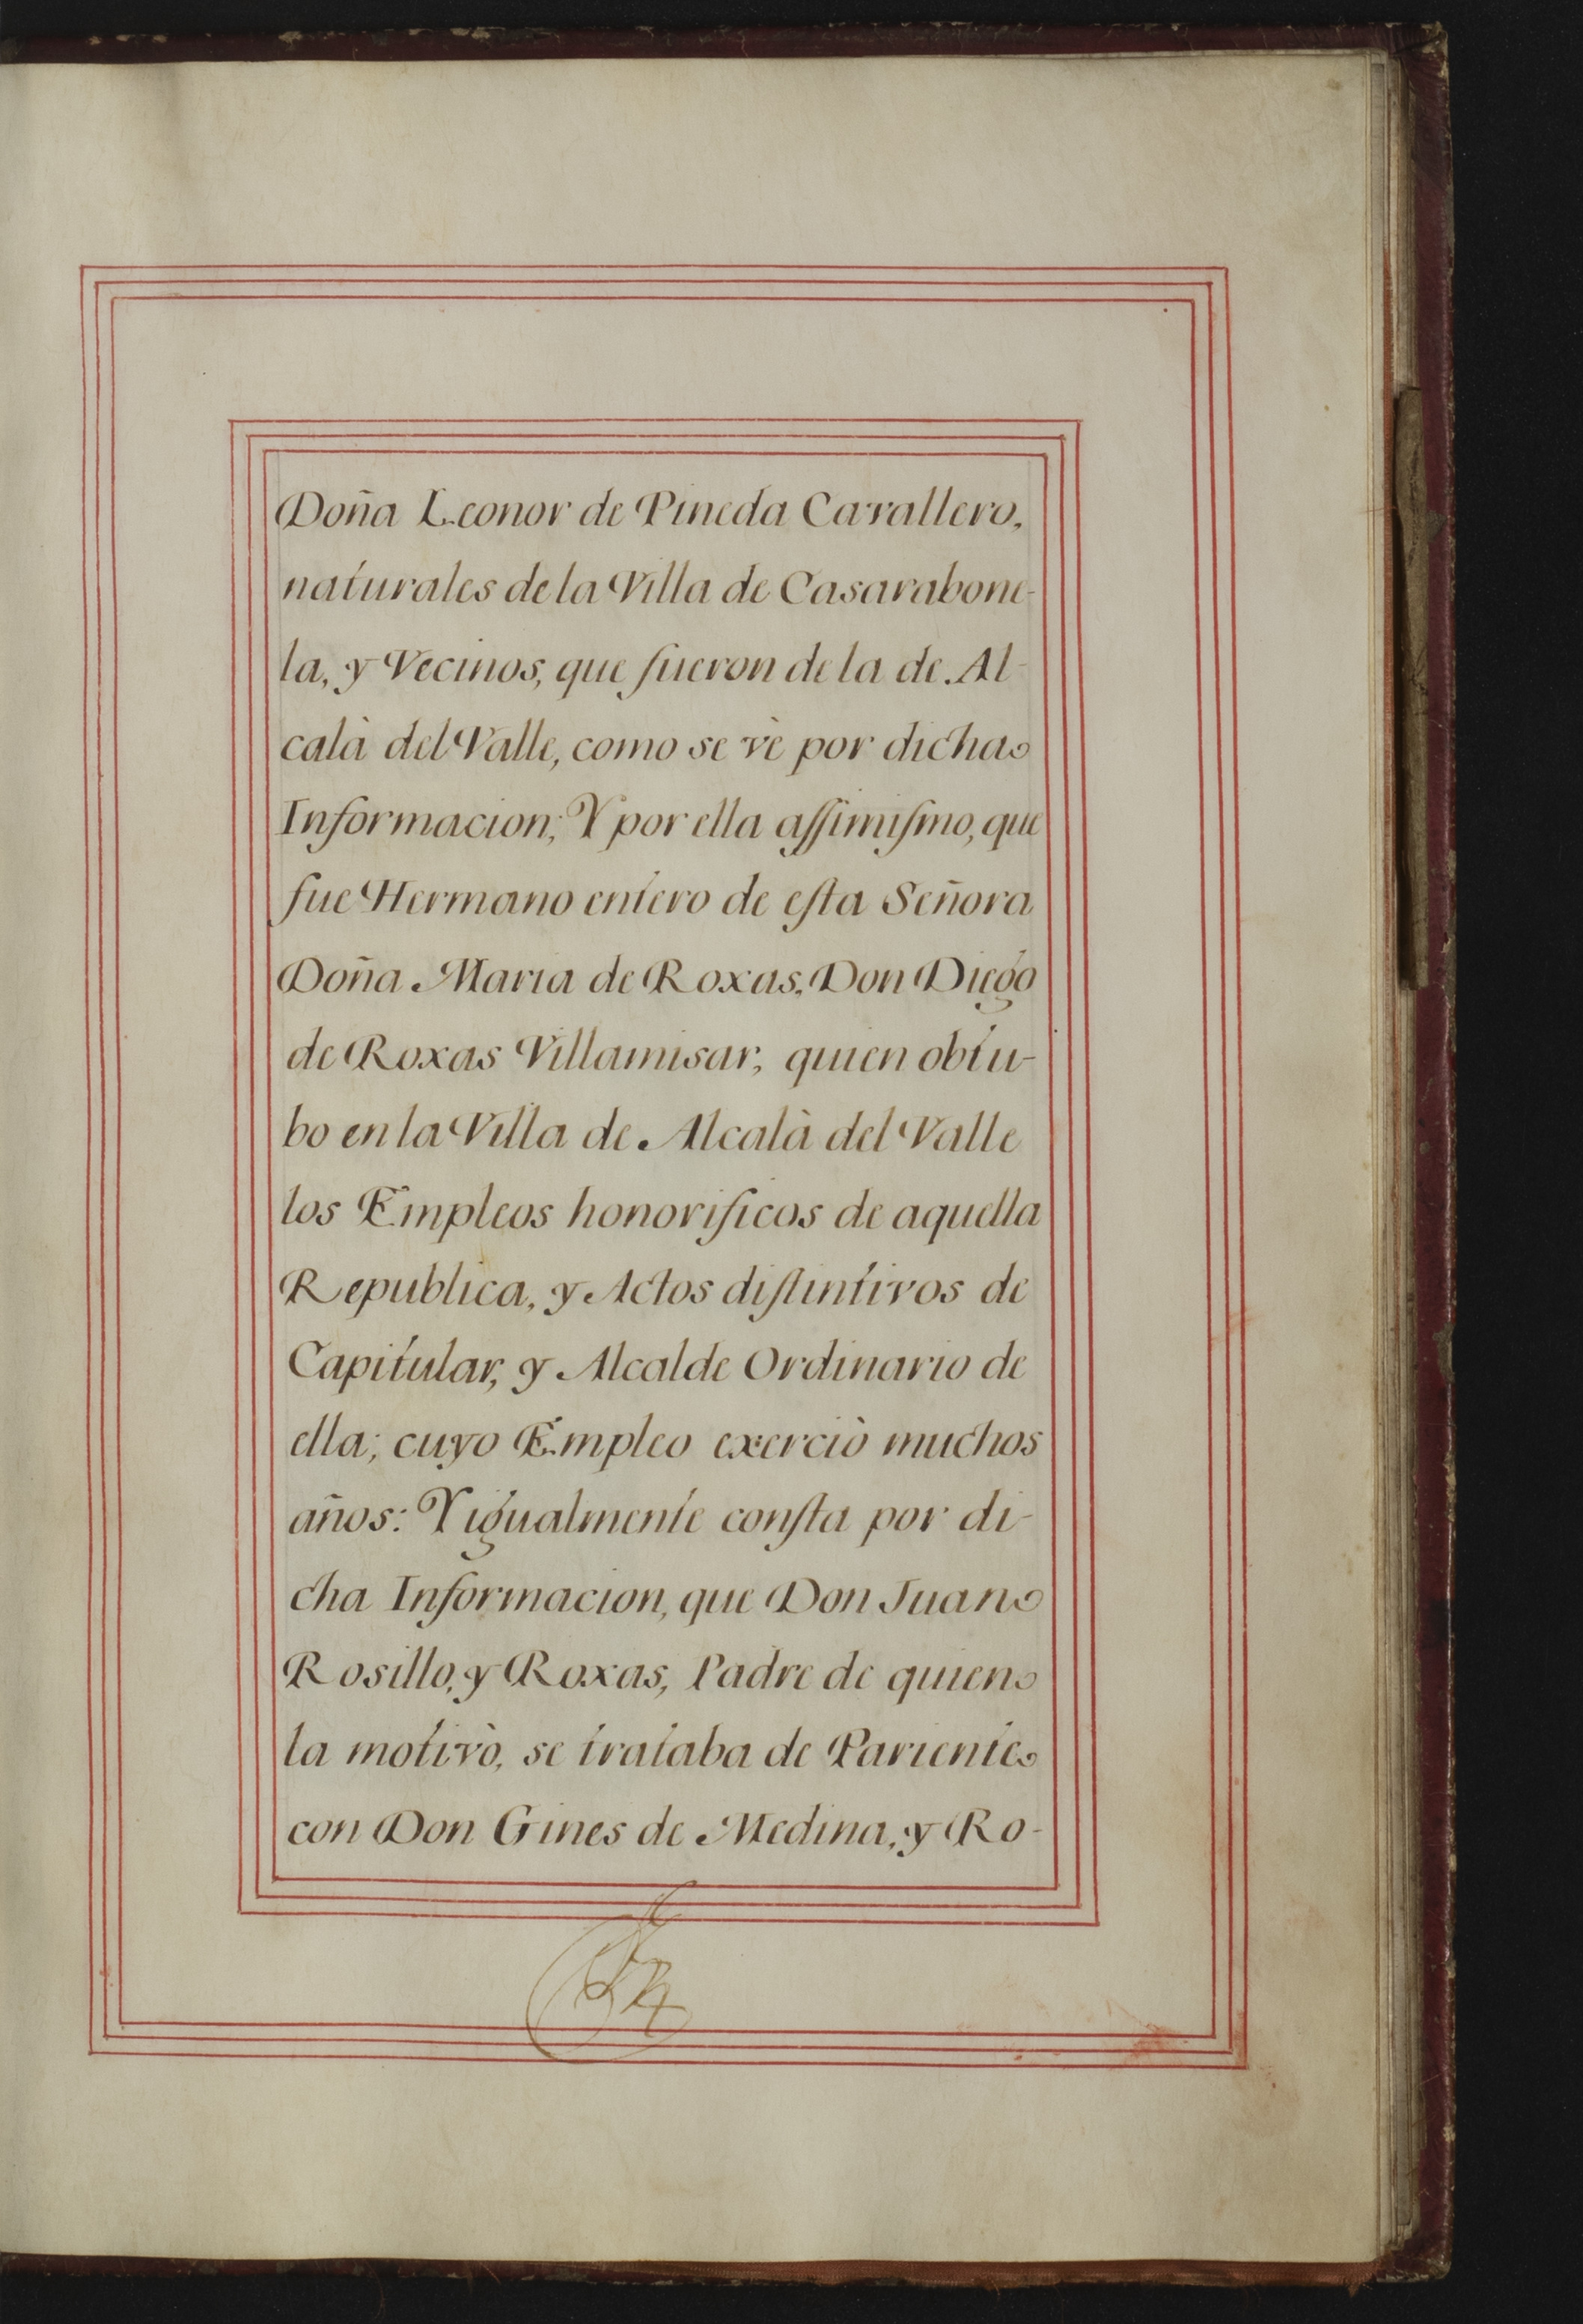 Doña Leonor de Pineda Cavallero,
naturales de la Villa de Casarabone-
la, y Vecinos, que fueron de la de Al-
calà del Valle, como se vè por dicha
Informacion; Y por ella aſsimiſmo, que
fue Hermano entero de eſta Señora
Doña Maria de Roxas, Don Diego
de Roxas Villamisar, quien obtu-
bo en la Villa de Alcalà del Valle
los Empleos honorificos de aquella
Republica, y Actos diſtintivos de
Capitular, y Alcalde Ordinario de
ella; cuyo Empleo exerciò muchos
años: Y igualmente conſta por di-
cha Informacion, que Don Juan
Rosillo, y Roxas, Padre de quien
la motivò, se trataba de Pariente
con Don Gines de Medina, y Ro-